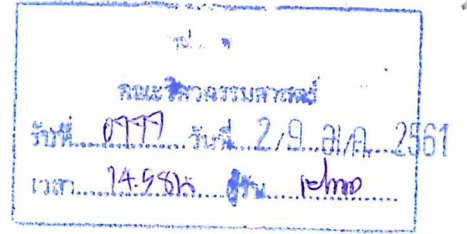 คณะวิศวกรรมศาสตร์
รับที่ 0777 วันที่ 29 ม.ค. 2561
เวลา 14.58น ผู้รับ